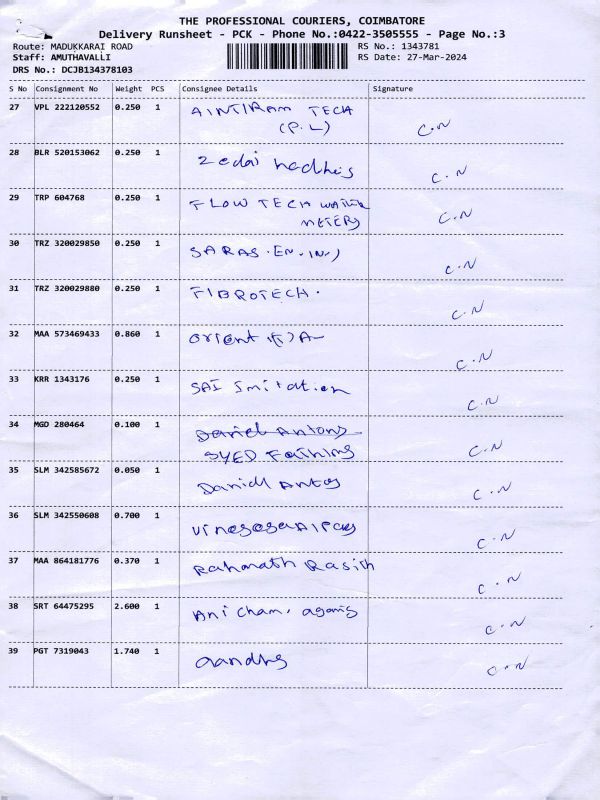 THE PROFESSIONAL COURIERS, COIMBATORE
Delivery Runsheet - PCK - Phone No.:0422-3505555 - Page No.:3
Route: MADUKKARAI ROAD RS No.: 1343781
Staff: AMUTHAVALLI RS Date: 27-Mar-2024
DRS No.: DCJB134378103
S No Consignment No Weight PCS Consignee Details Signature
27 VPL 222120552 0.250 1 AINTIRAM TECH C.N
(P.L)
28 BLR 520153062 0.250 1 C.N
29 TRP 604768 0.250 1 FLOW TECH WATER C.N
METERS
30 TRZ 320029850 0.250 1 SARAS.EN.IN) C.N
31 TRZ 320029880 0.250 1 FIBROTECH. C.N
32 MAA 573469433 0.860 1 Orient C.N
33 KRR 1343176 0.250 1 SAI C.N
34 MGD 280464 0.100 1 Daniel Antony C.N
SYED
35 SLM 342585672 0.050 1 Daniel C.N
36 SLM 342550608 0.700 1 C.N
37 MAA 864181776 0.370 1 Rahmath Rasith C.N
38 SRT 64475295 2.600 1 Ani Cham. C.N
39 PGT 7319043 1.740 1 C.N